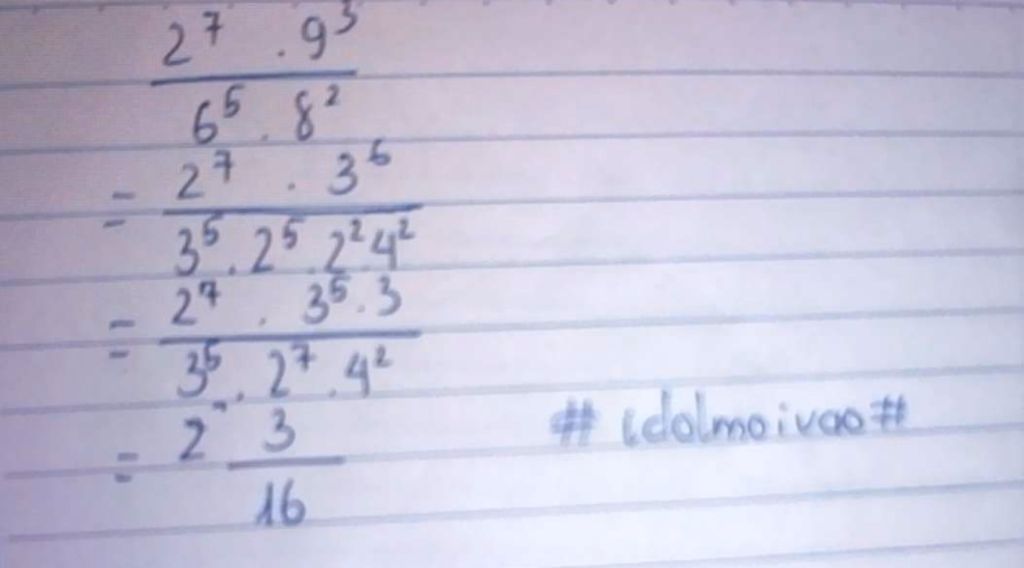 2⁷ . 9³
6⁵ . 8²
= 2⁷ . 3⁶
3⁵ . 2⁵ . 2² 4²
= 2⁷ . 3⁵ . 3
3⁵ . 2⁷ . 4²
= 2 3
16
# idolmoivao #